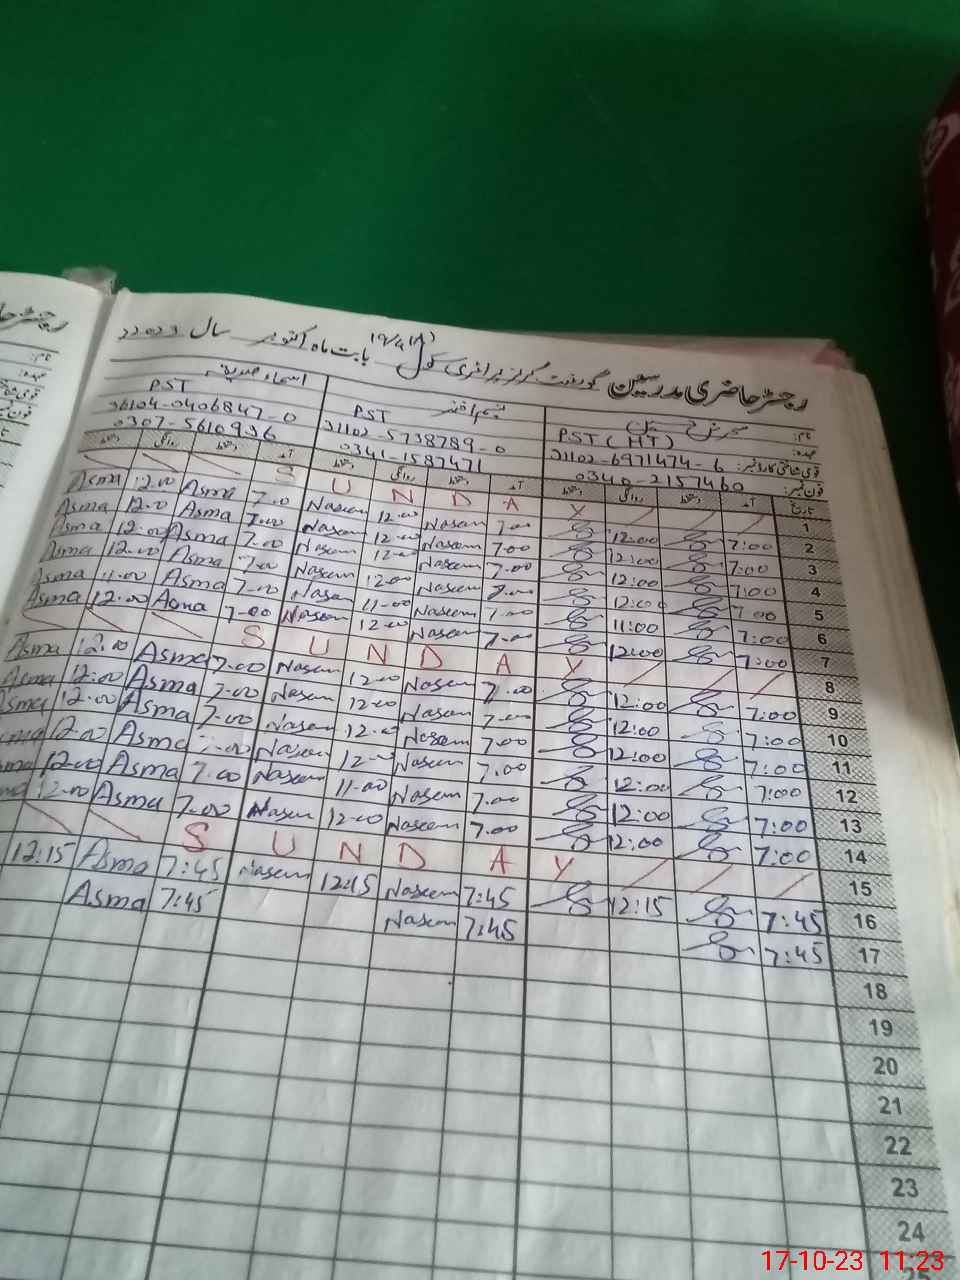 رجسٹر حاضری مدرسین گورنمنٹ گرلز پرائمری سکول 19/4(A) بابت ماہ اکتوبر سال 2023
نام:
اسماء صدیقہ
عہدہ: PST (HT)
PST
PST
قومی شناختی کارڈ نمبر: 31102-6971474-6
31102-5738789-0
36104-0406847-0
فون نمبر: 0340-2157460
0341-1587471
0307-5610936
تاریخ آمد دستخط روانگی دستخط آمد دستخط روانگی دستخط آمد دستخط روانگی دستخط
S U N D A Y 1
Asma 12.00 Asma 7.00 Naseem 12-00 Naseem 7.00 12:00 7:00 2
Asma 12.0 Asma 7.00 Naseem 12-00 Naseem 7.00 12:00 7:00 3
Asma 12.00 Asma 7.00 Naseem 12-00 Naseem 7.00 12:00 7:00 4
Asma 12.00 Asma 7.00 Naseem 12.00 Naseem 7.00 12:00 7:00 5
Asma 11.00 Asma 7.00 Naseem 11-00 Naseem 7.00 11:00 7:00 6
Asma 12.00 Asma 7-00 Naseem 12-00 Naseem 7.00 12:00 7:00 7
S U N D A Y 8
Asma 12.00 Asma 7.00 Naseem 12-00 Naseem 7.00 12:00 7:00 9
Asma 12:00 Asma 7.00 Naseem 12-00 Naseem 7.00 12:00 7:00 10
Asma 12.00 Asma 7.00 Naseem 12.00 Naseem 7.00 12:00 7:00 11
12.00 Asma 7.00 Naseem 12-00 Naseem 7.00 12:00 7:00 12
12.00 Asma 7.00 Naseem 11.00 Naseem 7.00 12:00 7:00 13
12.00 Asma 7.00 Naseem 12-00 Naseem 7.00 12:00 7:00 14
S U N D A Y 15
12:15 Asma 7:45 Naseem 12:15 Naseem 7:45 12:15 7:45 16
Asma 7:45 Naseem 7:45 7:45 17
18
19
20
21
22
23
24
17-10-23 11:23